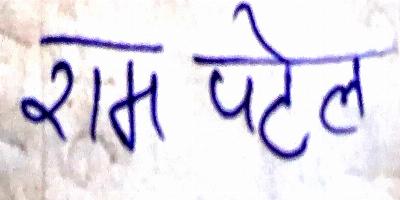 राम पटेल